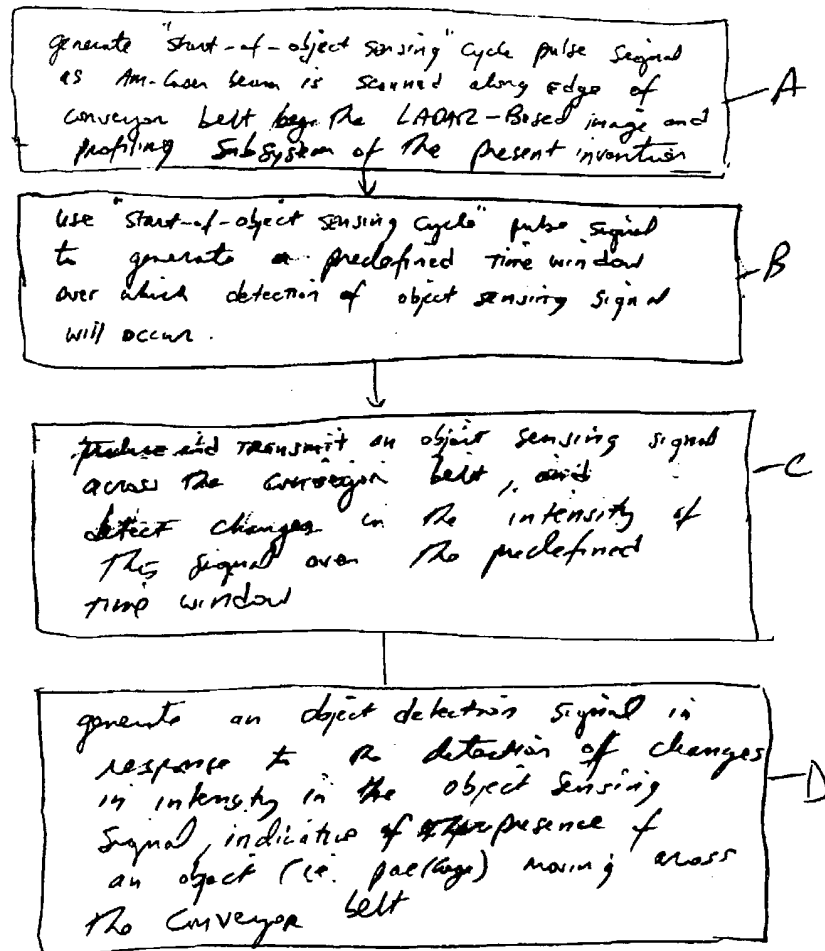 generate "start-of-object sensing" cycle pulse signal
as AM-laser beam is scanned along edge of
conveyor belt by the LADAR-Based image and
profiling subsystem of the present invention
A
use "start-of-object sensing cycle" pulse signal
to generate a predefined time window
over which detection of object sensing signal
will occur.
B
produce and transmit an object sensing signal
across the conveyor belt, and
detect changes in the intensity of
this signal over the predefined
time window
C
generate an object detection signal in
response to the detection of changes
in intensity in the object sensing
signal, indicative of presence of
an object (i.e. package) moving across
the conveyor belt
D